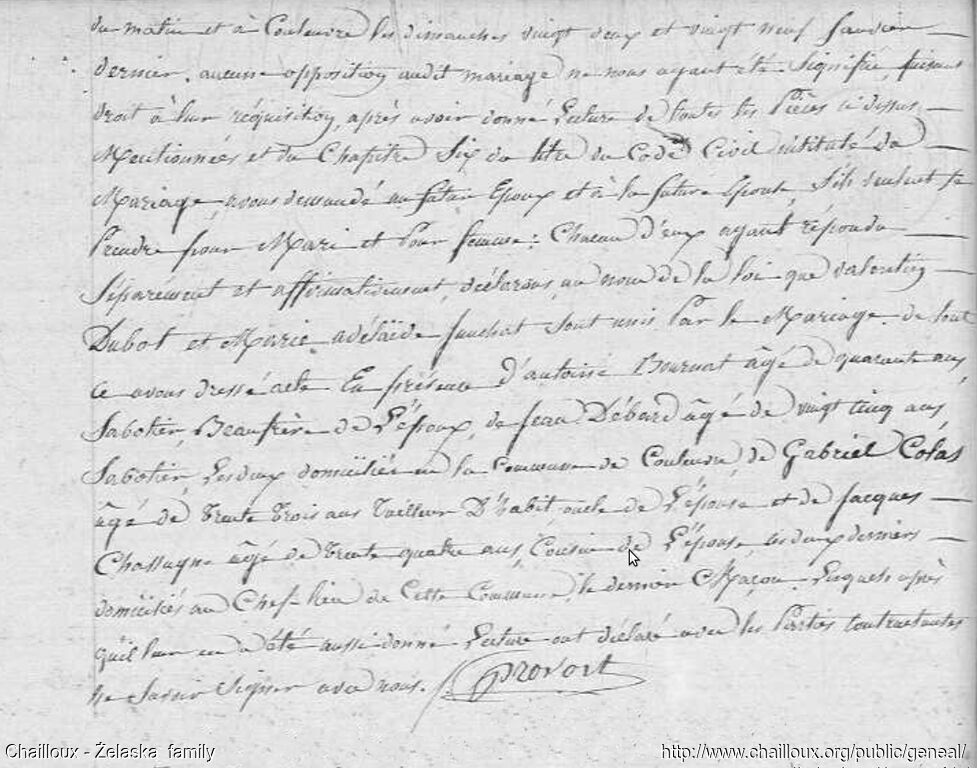 du matin et à Couleuvre les dimanches vingt deux et vingt neuf Janvier
dernier, aucune opposition audit mariage ne nous ayant été signifié, faisant
droit à leur réquisition, après avoir donné Lecture de toutes les Pièces ci dessus
Mentionnées et du Chapitre Six du titre du Code Civil intitulé du
Mariage, avons demandé au futur Epoux et à la future Epouse, S'ils veulent se
Prendre pour Mari et Pour femme : Chacun d'eux ayant répondu
Séparément et affirmativement, déclarons au nom de la loi que Valentin
Dubot et Marie adélaïde fauchat Sont unis Par le Mariage. de tout
Ce avons dressé acte En présence d'antoine Bournat âgé de quarante ans
Sabotier, Beaufrère de L'Epoux, de Jean Débard âgé de vingt cinq ans,
Sabotier, Les deux domiciliés en la Commune de Couleuvre, de Gabriel Colas
âgé de trente trois ans Tailleur D'habit, oncle de L'épouse et de Jacques
Chassagne âgé de trente quatre ans, Cousin de L'épouse, les deux derniers
domiciliés au Chef-lieu de Cette Commune, le dernier Maçon. Lesquels après
qu'il leur en a été aussi donné Lecture ont déclaré avec les Parties Contractantes
ne Savoir Signer avec nous.
Provort
Chailloux - Żelaska family
http://www.chailloux.org/public/geneal/